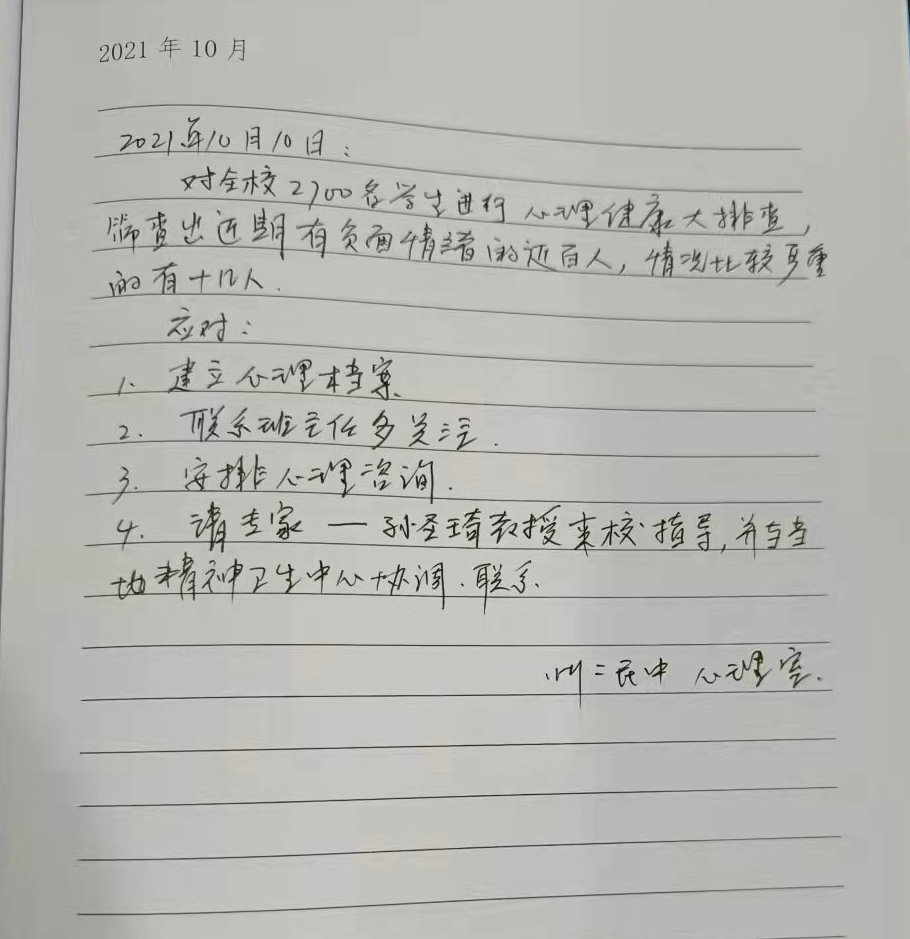 2021 年 10 月
2021年10月10日：
对全校2700名学生进行心理健康大排查，
筛查出近期有负面情绪的近百人，情况比较严重
的有十几人.
应对：
1. 建立心理档案.
2. 联系班主任多关注.
3. 安排心理咨询.
4. 请专家 — 孙圣琦教授来校指导，并与当
地精神卫生中心协调.联系.
二民中 心理室.